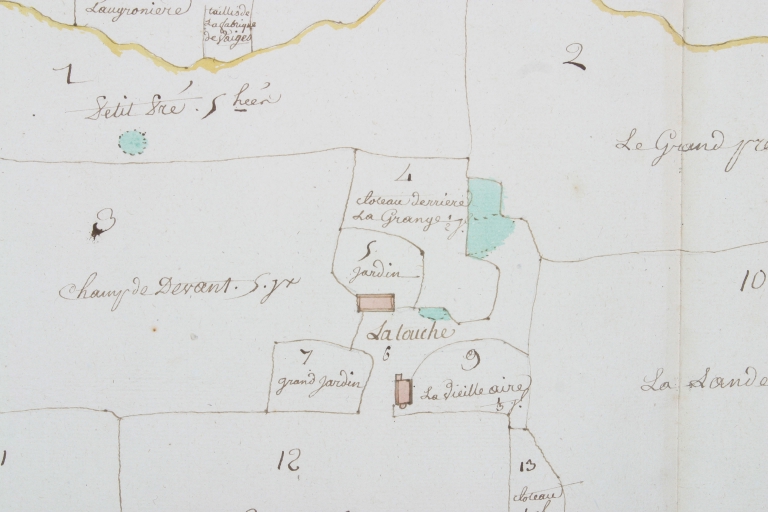 Lavyroniere
taillis de
La fabrique
de Vaiges
1
2
Petit Pré
Le Grand pré
3
4
cloteau derriere
La Grange
5
jardin
Champ de Devant
10
La touche
6
7
grand Jardin
9
La Vieille aire
La Lande
1
12
13
cloteau